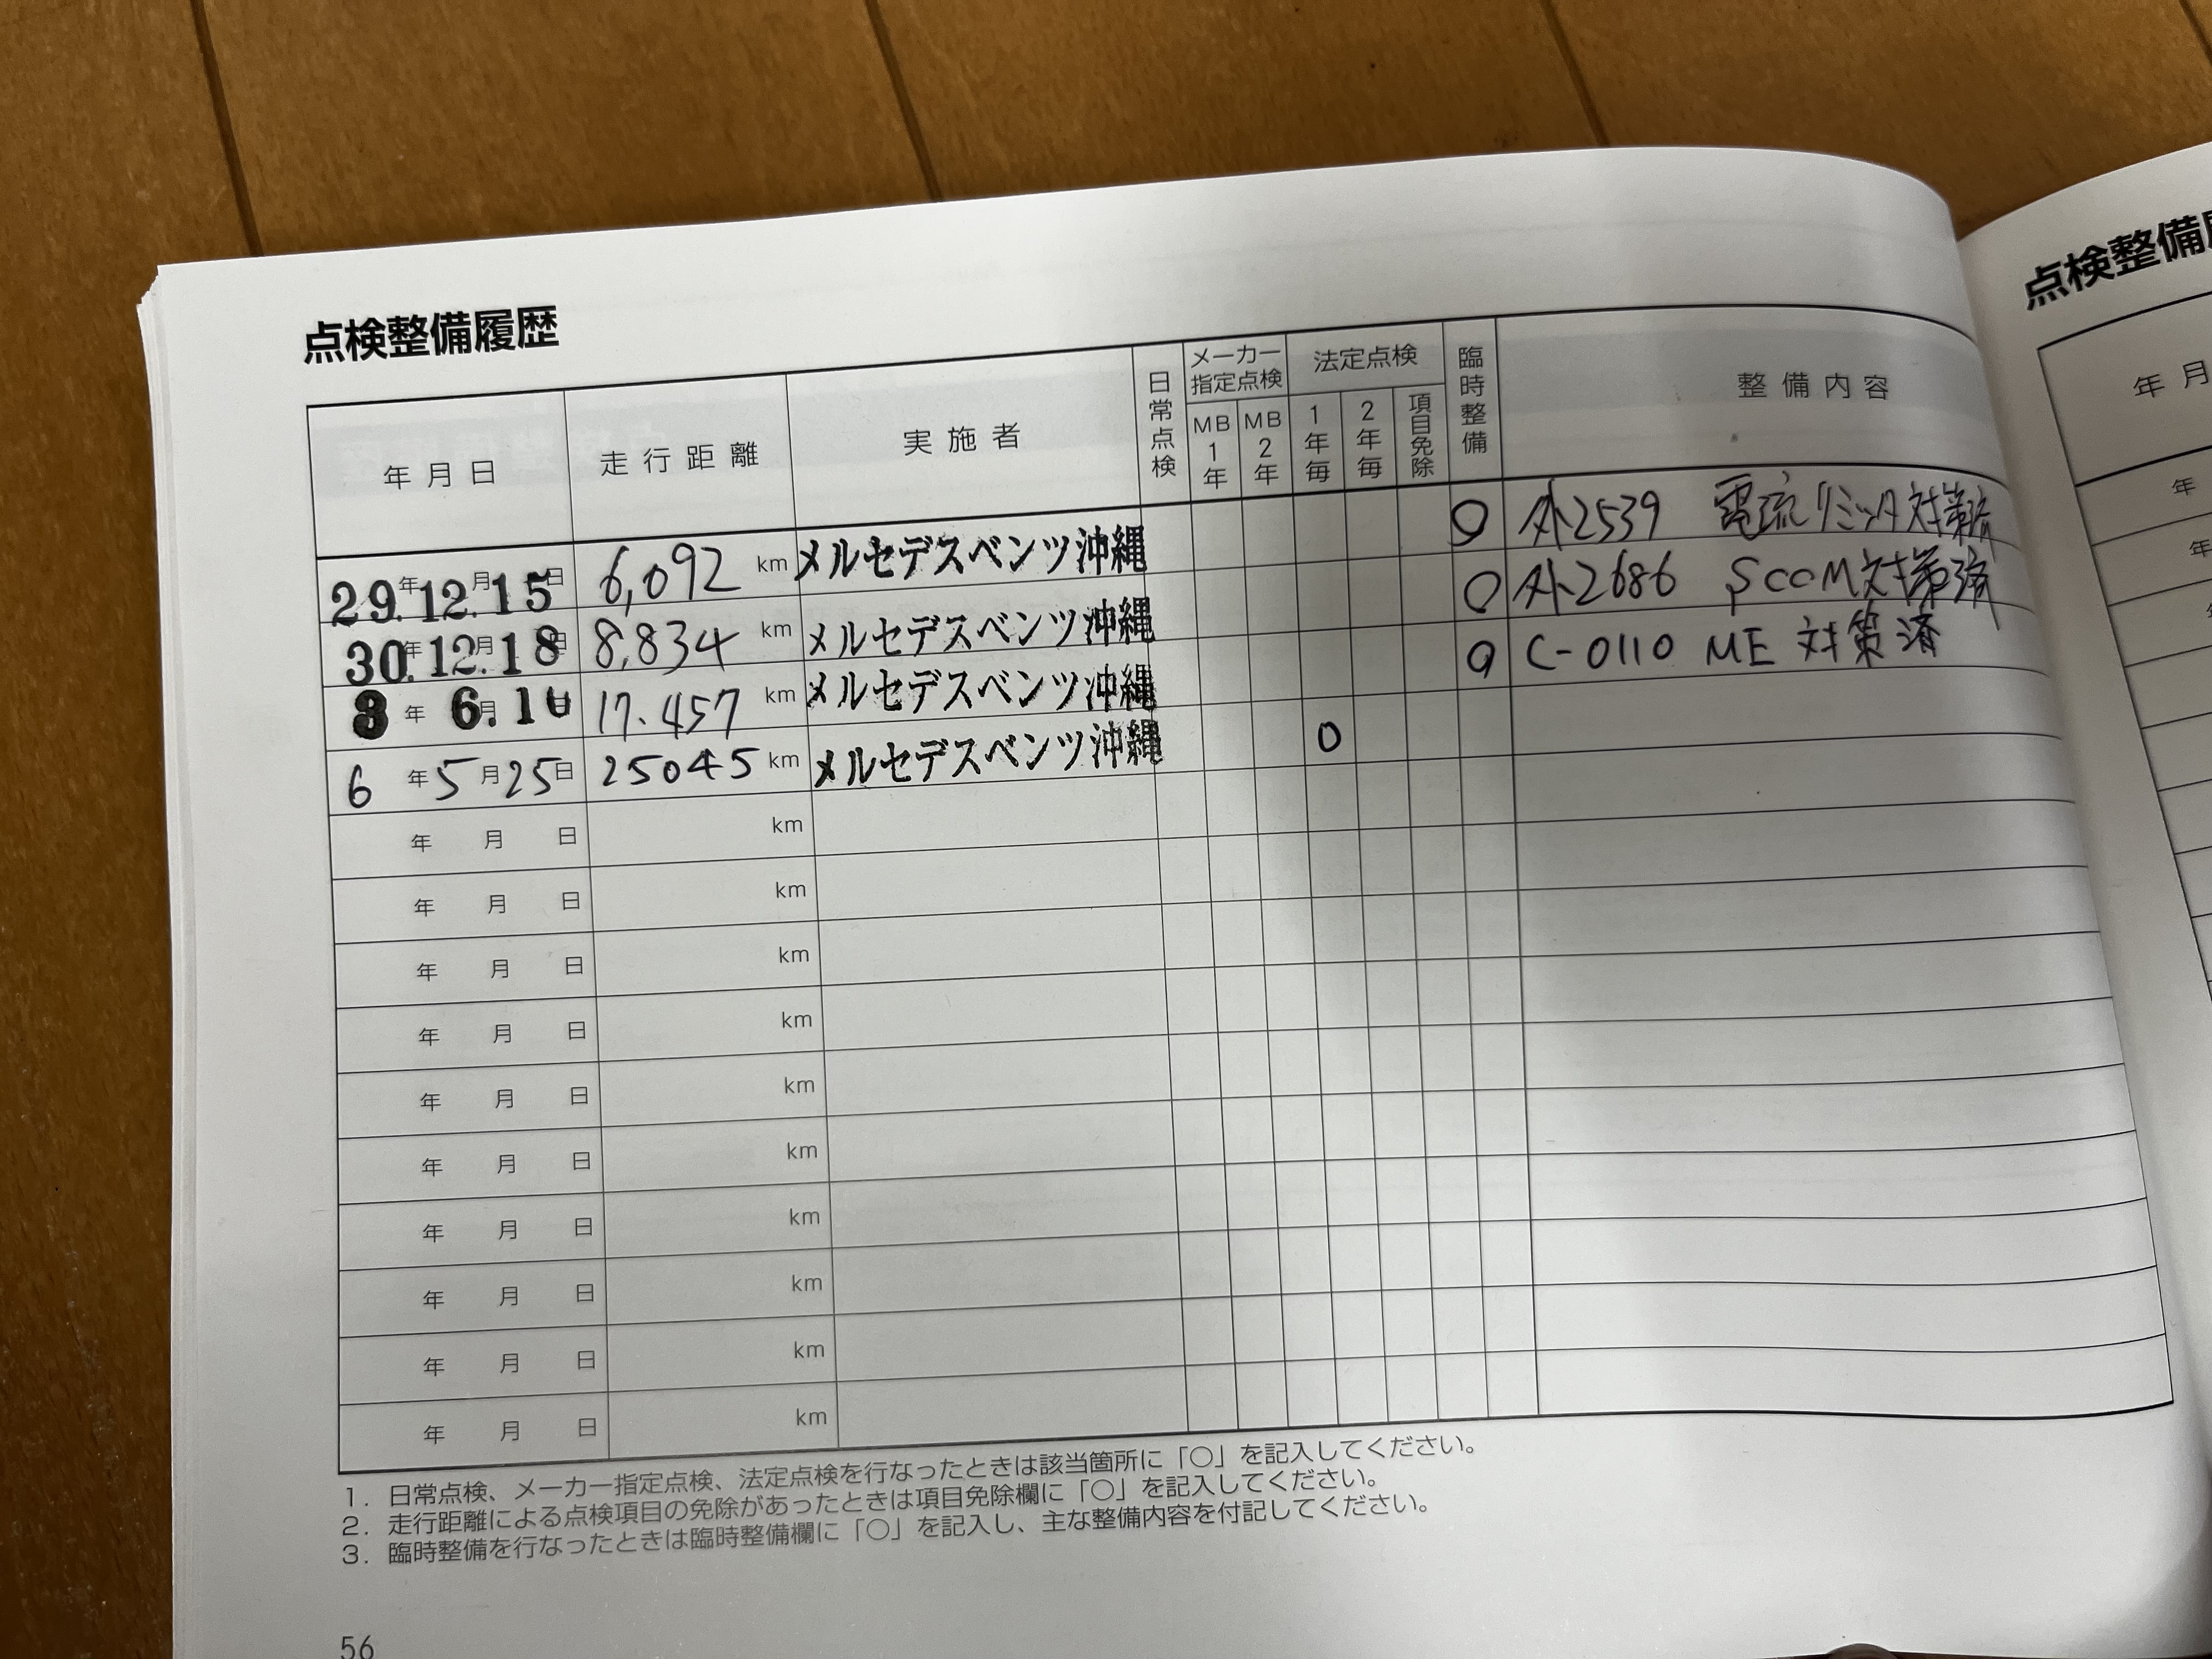 点検整備履歴
年月日 走行距離 実施者 日常点検 メーカー指定点検 MB1年 MB2年 法定点検 1年毎 2年毎 項目免除 臨時整備 整備内容
29.年12.月15日 6,092 km メルセデスベンツ沖縄 〇 外2539 電流リミッタ対策済
30.年12.月18日 8,834 km メルセデスベンツ沖縄 〇 外2686 SCCM対策済
3年 6.月 17.457 km メルセデスベンツ沖縄 〇 C-0110 ME 対策済
6年5月25日 25045 km メルセデスベンツ沖縄 〇
年 月 日 km
年 月 日 km
年 月 日 km
年 月 日 km
年 月 日 km
年 月 日 km
年 月 日 km
年 月 日 km
年 月 日 km
年 月 日 km
1. 日常点検、メーカー指定点検、法定点検を行なったときは該当箇所に「〇」を記入してください。
2. 走行距離による点検項目の免除があったときは項目免除欄に「〇」を記入してください。
3. 臨時整備を行なったときは臨時整備欄に「〇」を記入し、主な整備内容を付記してください。
56
点検整備
年 月
年
年